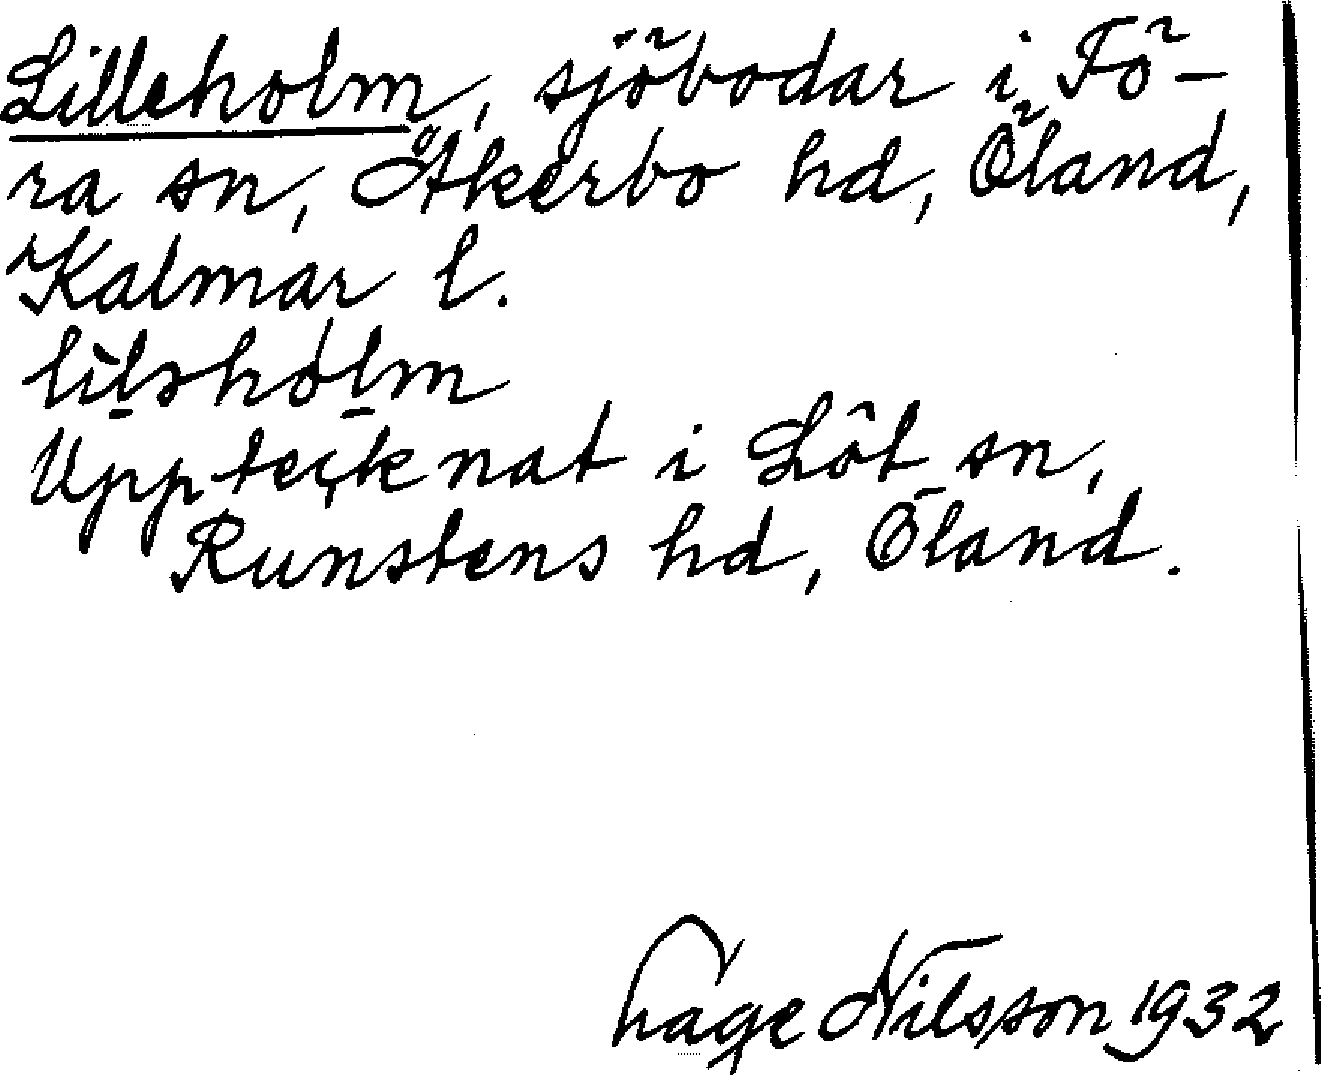 Lilleholm, sjöbodar i Fö-
ra sn, Åkerbo hd, Öland,
Kalmar l.
lìlshólm
Upptecknat i Löt sn,
Runstens hd, Öland.
Hage Nilsson 1932